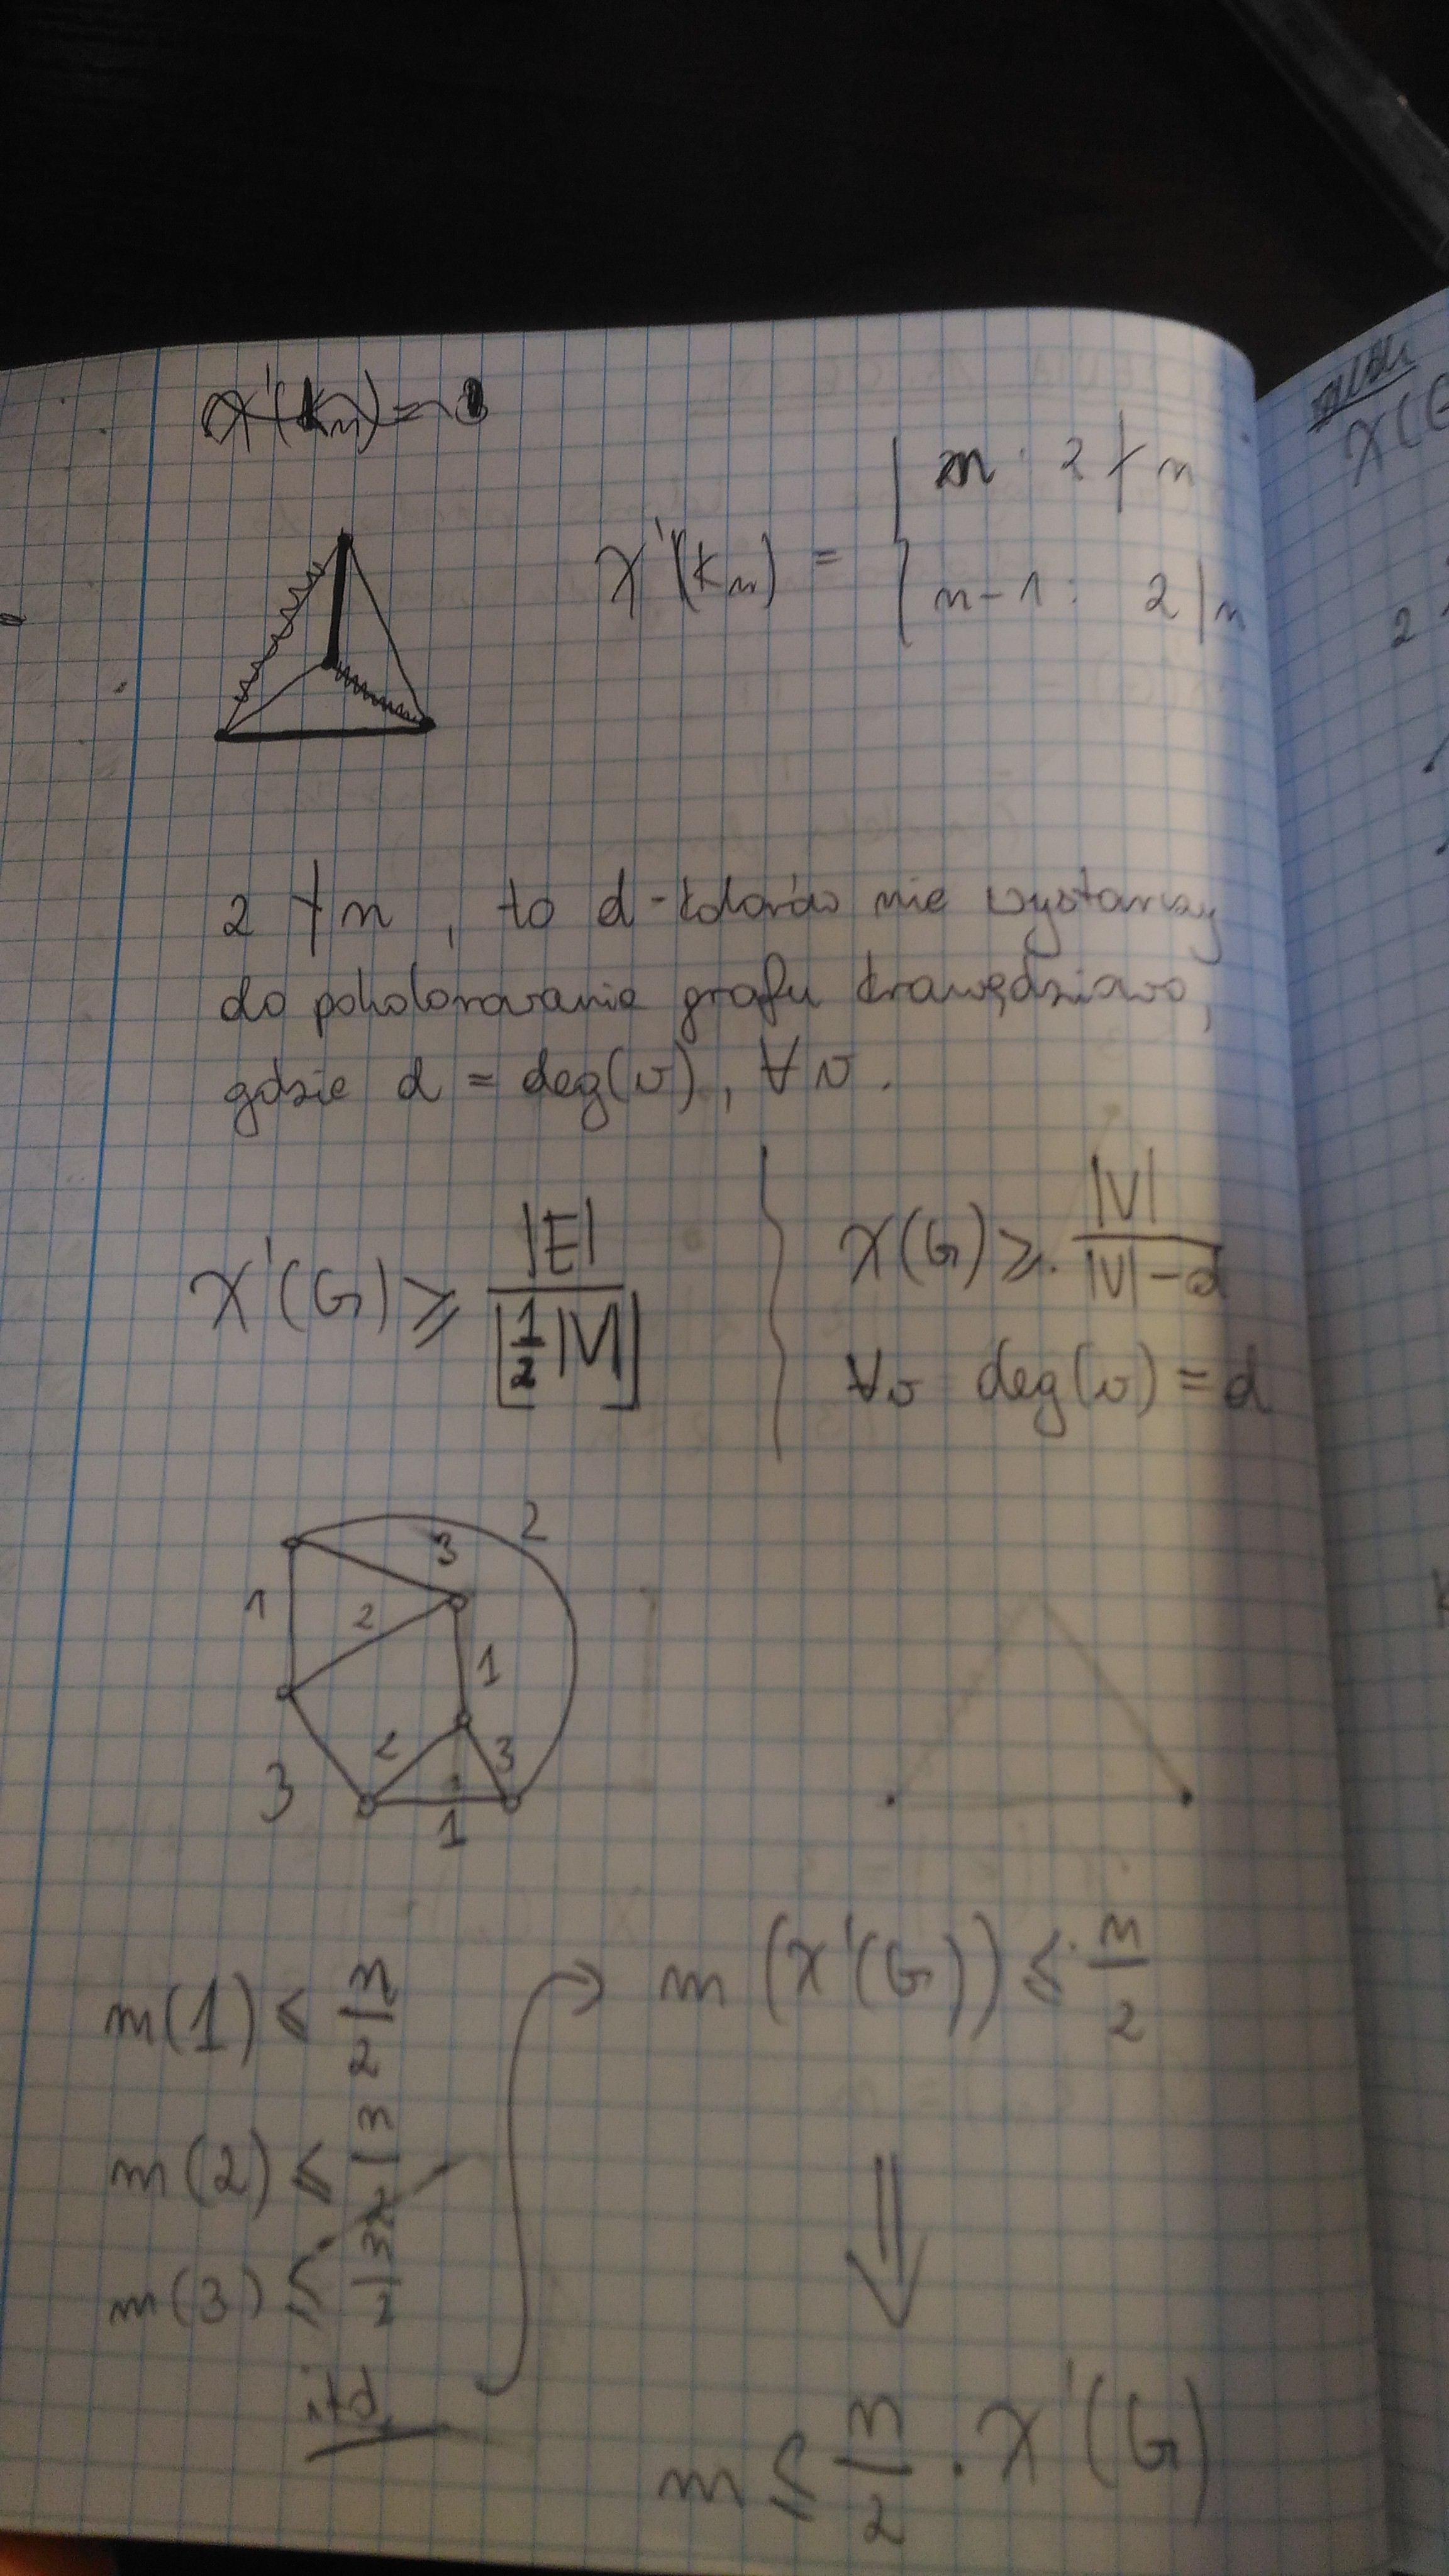 χ'(Kn) =
χ'(Kn) = { n : 2 ∤ n
n-1 : 2 | n
2 ∤ n, to d-kolorów nie wystarczy
do pokolorowania grafu krawędziowo,
gdzie d = deg(v), ∀v.
χ'(G) ≥ |E| / ⌊1/2 |V|⌋
χ(G) ≥ |V| / (|V| - d)
∀v deg(v) = d
2
3
1
2
1
2
3
3
1
m(1) ≤ n/2
m(2) ≤ n/2
m(3) ≤ n/2
itd
m(χ'(G)) ≤ n/2
⇓
m ≤ n/2 · χ'(G)
χ(G
2